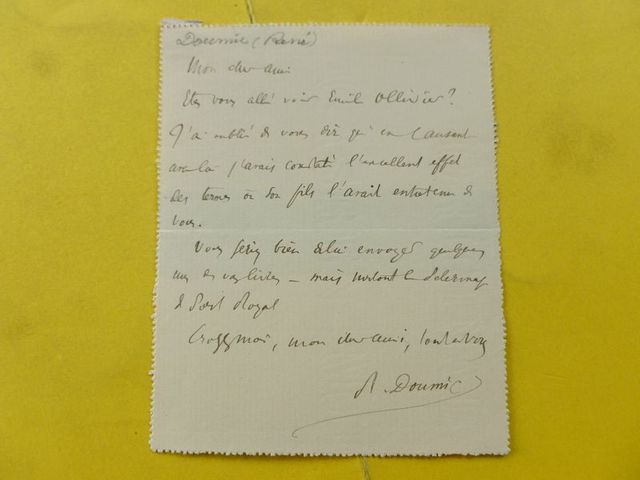 Doumic (René)
Mon cher ami
Etes vous allé voir Emile Ollivier ?
J'ai oublié de vous dire qu'en causant
avec lui j'avais constaté l'excellent effet
des termes où son fils l'avait entretenu de
vous.
Vous feriez bien de lui envoyer quelques
uns de vos livres – mais surtout le Pelerinage
de Port Royal
Croyez moi, mon cher ami, tout à vous
R. Doumic